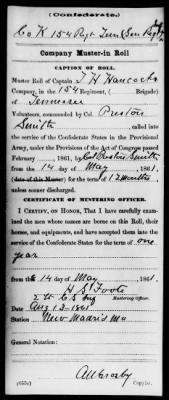 (Confederate.)
Co K 154 Regt Tenn (Sen Regt) Inf
Company Muster-in Roll
CAPTION OF ROLL.
Muster Roll of Captain J H Hancock's
Company, in the 154 Regiment, ( Brigade)
of Tennessee
Volunteers, commanded by Col. Preston
Smith, called into
the service of the Confederate States in the Provisional
Army, under the Provisions of the Act of Congress passed
February , 1861, by Col Preston Smith
from the 14 day of May, 1861,
(date of this Muster) for the term of 12 Months
unless sooner discharged.
CERTIFICATE OF MUSTERING OFFICER.
I CERTIFY, ON HONOR, That I have carefully examined
the men whose names are borne on this Roll, their
horses, and equipments, and have accepted them into the
service of the Confederate States for the term of one
year
from the 14 day of May, 1861.
H S Foote
2 C S
Mustering Officer.
Date Aug 13-1861
Station New Madrid Mo
General Notation:
Copyist.